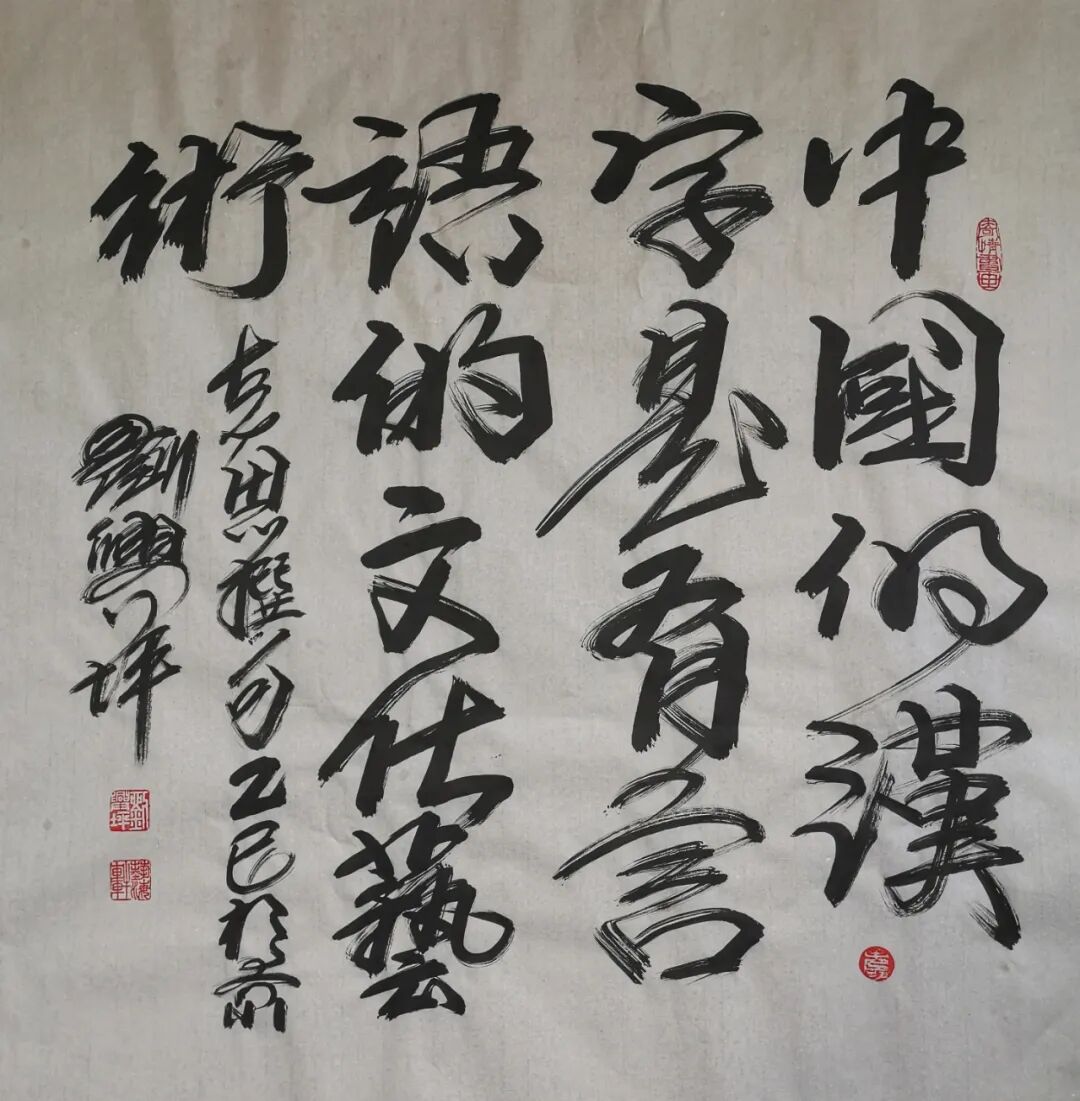 中國的漢
字是有言
語的文化藝
術
克思撰句乙巳於京
劉興祥